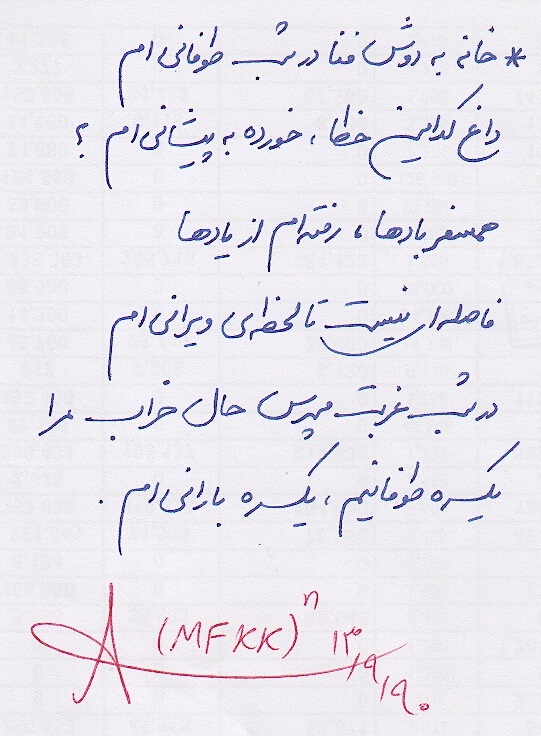 * خانه به دوش فنا در شب طوفانی ام
داغ کدامین خطا، خورده به پیشانی ام ؟
همسفر بادها، رفته ام از یادها
فاصله ای نیست تا لحظه ی ویرانی ام
در شب غربت مپرس حال خراب مرا
یکسره طوفانیم، یکسره بارانی ام .
A (MFKK)ⁿ ۱۳/۹/۹۰